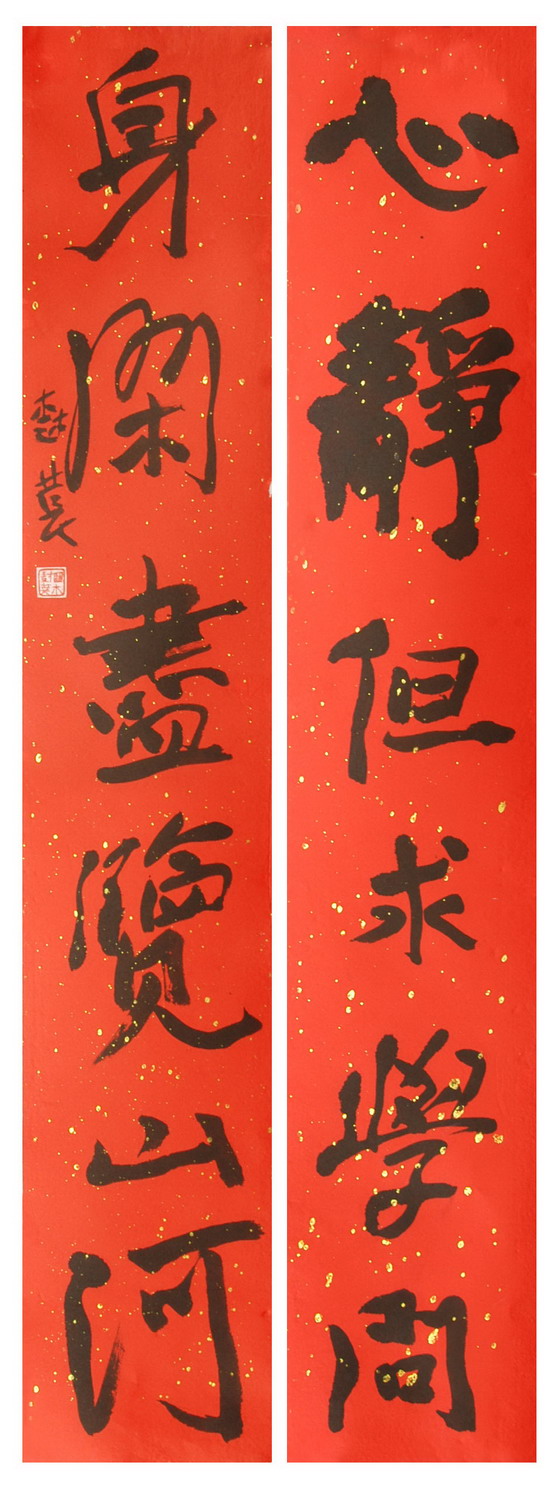 心靜但求學問
身閑盡覽山河